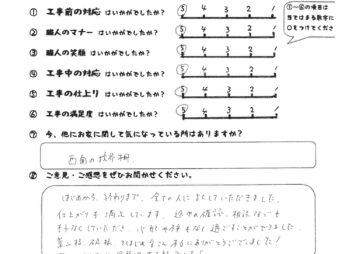 ① 工事前の対応 はいかがでしたか? 5 4 3 2 1
② 職人のマナー はいかがでしたか? 5 4 3 2 1
③ 職人の笑顔 はいかがでしたか? 5 4 3 2 1
④ 工事中の対応 はいかがでしたか? 5 4 3 2 1
⑤ 工事の仕上り はいかがでしたか? 5 4 3 2 1
⑥ 工事の満足度 はいかがでしたか? 5 4 3 2 1
①~⑥の項目は
当てはまる数字に
○をつけてくださ
⑦ 今、他にお家に関して気になっている所はありますか?
西面の
⑧ ご意見・ご感想をぜひお聞かせください。
はじめから、終わりまで、全ての人によくしていただきました。
仕上がりも満足しています。途中の確認、相談なども
していただき、心配や不もなく過ごすことができました。
はじめ皆さん、本当にありがとうございました!